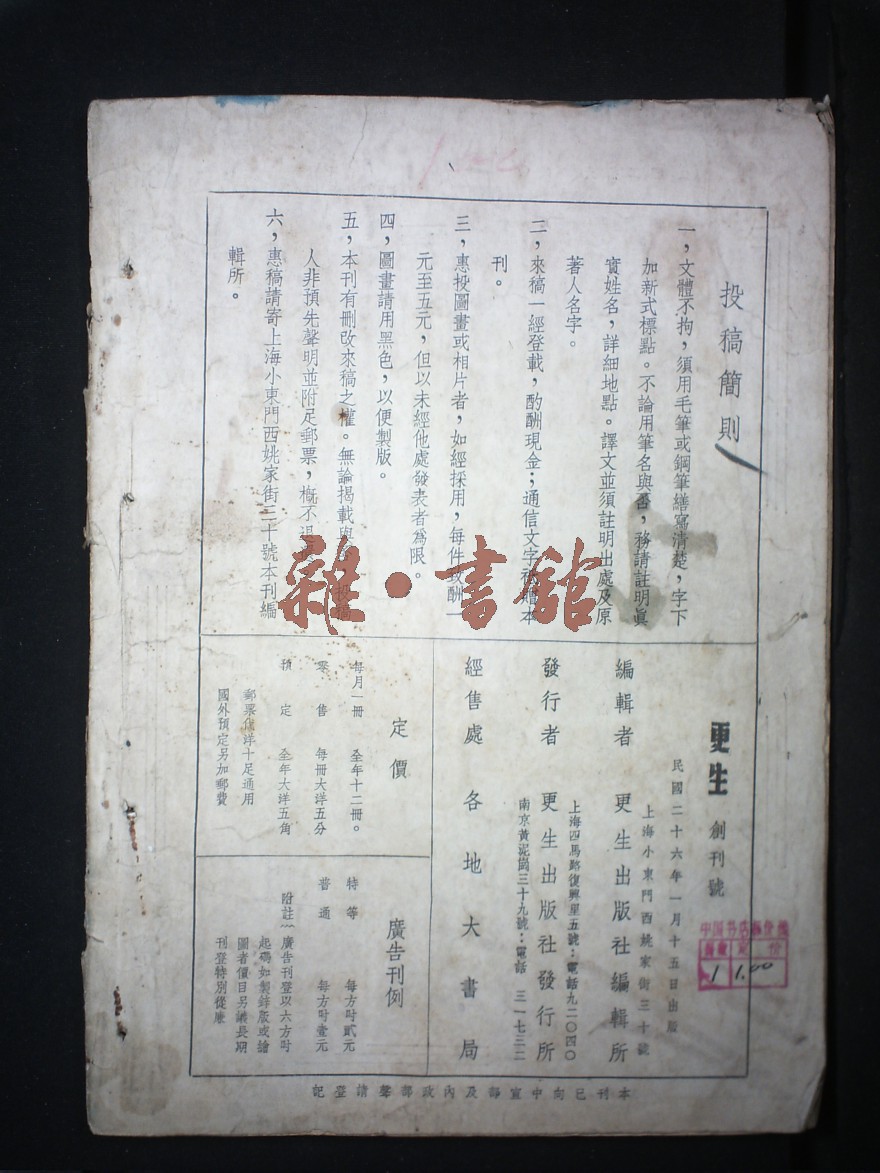 投稿簡則
一，文體不拘，須用毛筆或鋼筆繕寫清楚，字下
加新式標點。不論用筆名與否，務請註明眞
實姓名，詳細地點。譯文並須註明出處及原
著人名字。
二，來稿一經登載，酌酬現金；通信文字
本
刊。
三，惠投圖畫或相片者，如經採用，每件致酬一
元至五元，但以未經他處發表者爲限。
四，圖畫請用黑色，以便製版。
五，本刊有刪改來稿之權。無論揭載與
投稿
人非預先聲明並附足郵票，概不退
六，惠稿請寄上海小東門西姚家街三十號本刊編
輯所。
更生 創刊號
民國二十六年一月十五日出版
上海小東門西姚家街三十號
編輯者 更生出版社編輯所
上海四馬路復興里五號：電話九二〇四〇
發行者 更生出版社發行所
南京黃泥崗三十九號：電話 三一七三二
經售處 各地大書局
定價
每月一冊 全年十二冊。
零售 每冊大洋五分
預定 全年大洋五角
郵票代洋十足通用
國外預定另加郵費
廣告刊例
特等 每方吋貳元
普通 每方吋壹元
附註 廣告刊登以六方吋
起碼如製鋅版或繪
圖者價目另議長期
刊登特別從廉
本刊已向中宣部及內政部聲請登記
中国书店
定价
1 1.00
雜·書館